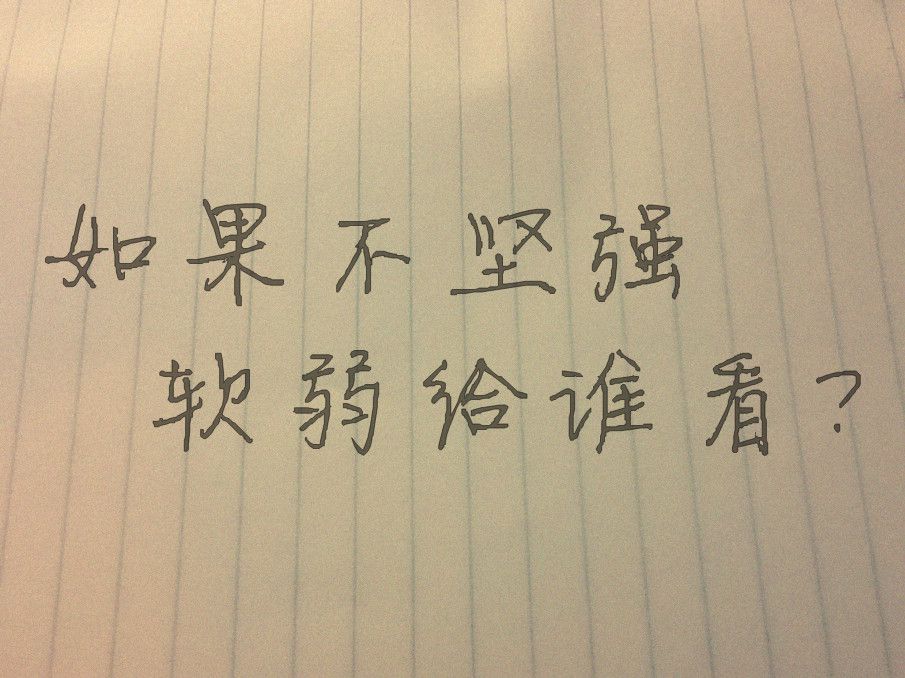 如果不坚强
软弱给谁看?